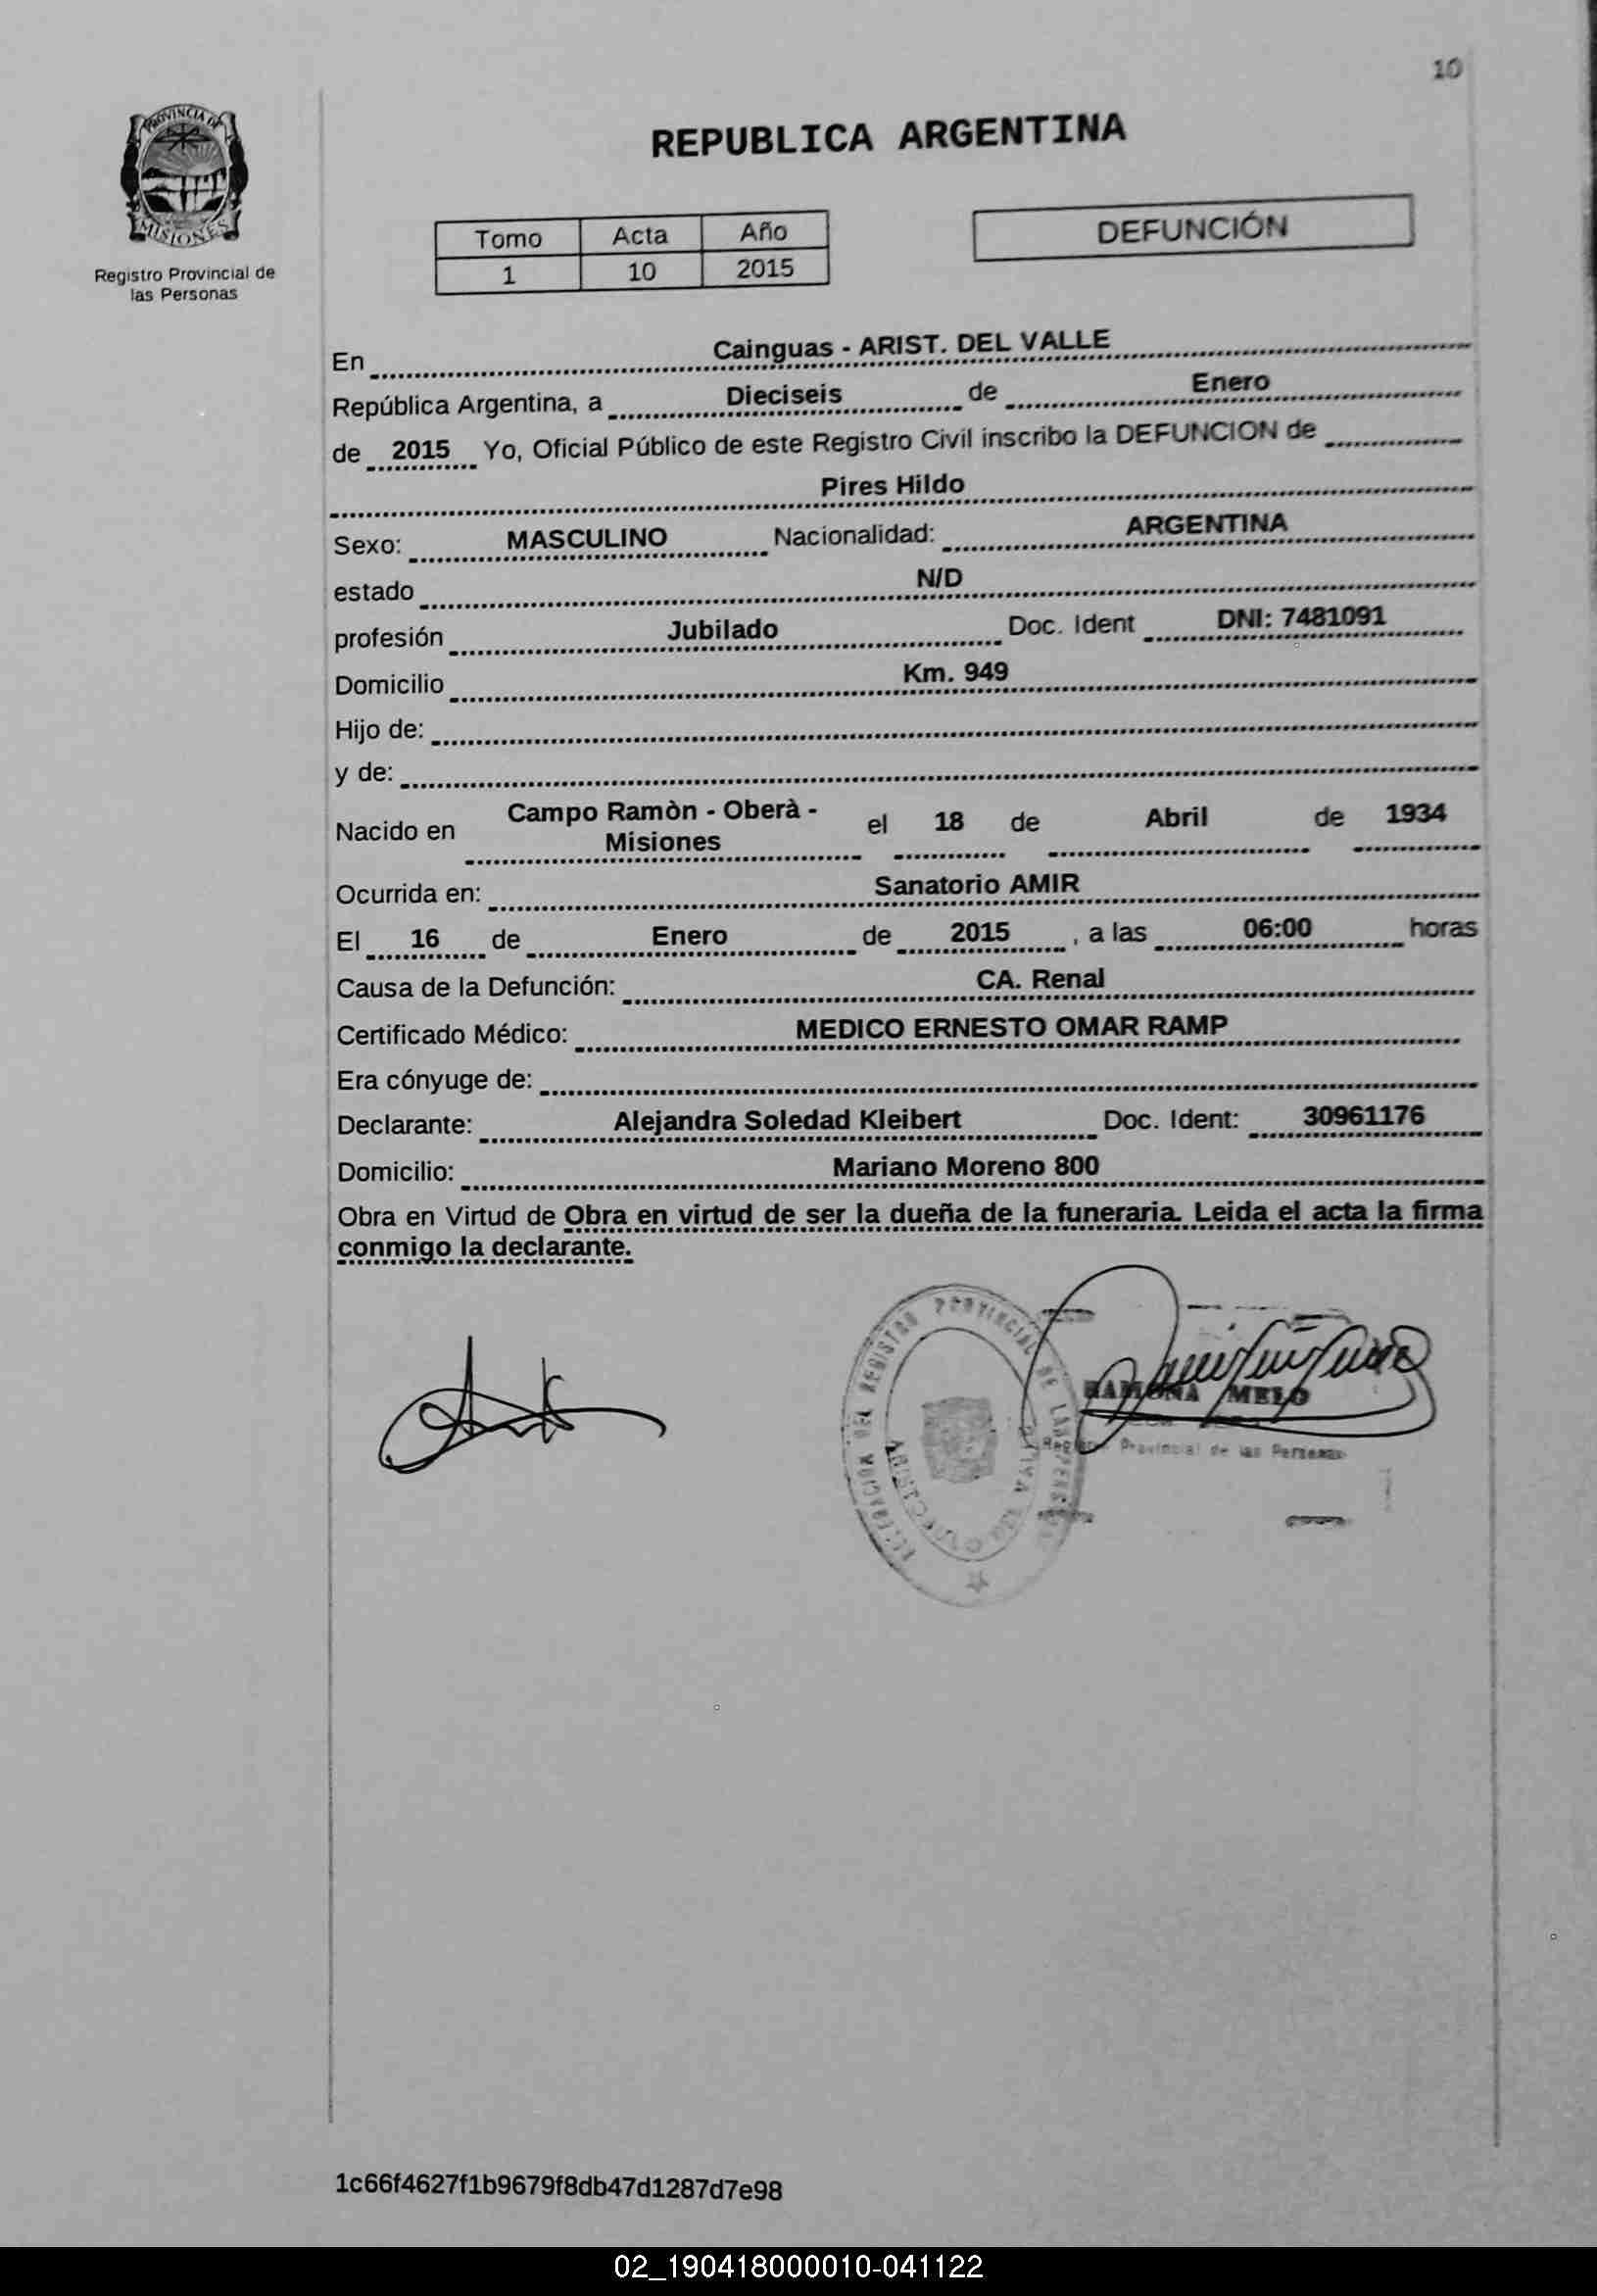 10
PROVINCIA DE
MISIONES
Registro Provincial de
las Personas
REPUBLICA ARGENTINA
Tomo Acta Año
1 10 2015
DEFUNCIÓN
En Cainguas - ARIST. DEL VALLE
República Argentina, a Dieciseis de Enero
de 2015 Yo, Oficial Público de este Registro Civil inscribo la DEFUNCION de
Pires Hildo
Sexo: MASCULINO Nacionalidad: ARGENTINA
estado N/D
profesión Jubilado Doc. Ident DNI: 7481091
Domicilio Km. 949
Hijo de:
y de:
Nacido en Campo Ramòn - Oberà - el 18 de Abril de 1934
Misiones
Ocurrida en: Sanatorio AMIR
El 16 de Enero de 2015 , a las 06:00 horas
Causa de la Defunción: CA. Renal
Certificado Médico: MEDICO ERNESTO OMAR RAMP
Era cónyuge de:
Declarante: Alejandra Soledad Kleibert Doc. Ident: 30961176
Domicilio: Mariano Moreno 800
Obra en Virtud de Obra en virtud de ser la dueña de la funeraria. Leida el acta la firma
conmigo la declarante.
DEL REGISTRO PROVINCIAL DE LAS
RAMONA MELO
Provincial de las Personas
1c66f4627f1b9679f8db47d1287d7e98
02_190418000010-041122